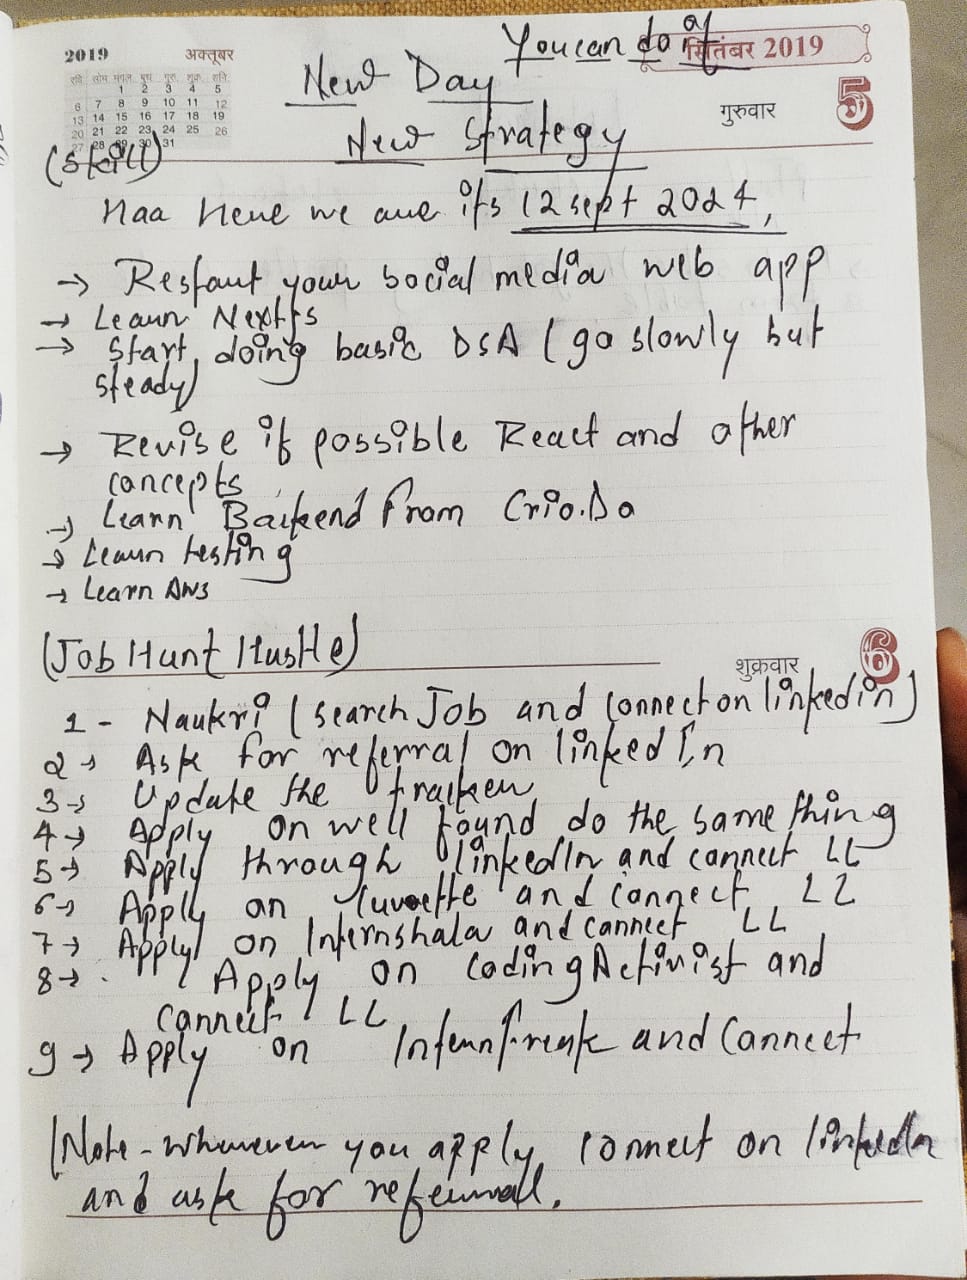 You can do it
2019 अक्तूबर
सितंबर 2019
रवि सोम मंगल बुध गुरु शुक्र शनि
1 2 3 4 5
6 7 8 9 10 11 12
13 14 15 16 17 18 19
20 21 22 23 24 25 26
27 28 29 30 31
New Day
गुरुवार 5
New Strategy
(Skill)
Haa Here we are its 12 sept 2024,
→ Restart your social media web app
→ Learn NextJs
→ Start doing basic DSA (go slowly but
steady)
→ Revise if possible React and other
concepts
→ Learn Backend from Crio.Do
→ Learn testing
→ Learn AWS
(Job Hunt Hustle)
शुक्रवार 6
1 - Naukri (search Job and connect on linkedin)
2 → Ask for referral on linkedIn
3 → Update the tracker
4 → Apply on well found do the same thing
5 → Apply through linkedIn and connect LL
6 → Apply on and connect LL
7 → Apply on Internshala and connect LL
8 → Apply on CodingActivist and
connect LL
9 → Apply on Internfreak and Connect
(Note - whenever you apply, connect on linkedIn
and ask for referral.